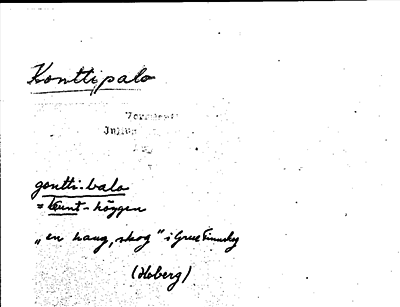 Konttipalo
Julius
gontti-balo
= kunt-höggen
„en haug, skog" i Grue Finnskog
(Hoberg)